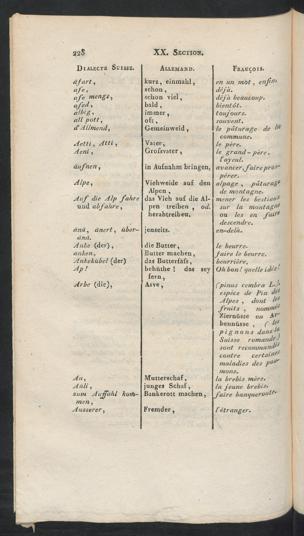 228 XX. SECTION.
DIALECTE SUISSE. ALLEMAND. FRANÇOIS.
afart, kurz, einmahl, en un mot, enfin.
afe, schon, déjà.
afe mengs, schon viel, déjà beaucoup.
afed, bald, bientôt.
albig, immer, toujours.
all pott, oft, souvent.
d'Allmend, Gemeinweid, le pâturage de la
commune.
Aetti, Atti, Vater, le père.
Aeni, Grofsvater, le grand-père,
l'ayeul.
äufnen, in Aufnahm bringen, avancer, faire pros-
pérer.
Alpe, Viehweide auf den alpage, pâturage
Alpen, de montagne.
Auf die Alp fahre das Vieh auf die Al- mener les bestiaux
und abfahre, pen treiben, od. sur la montagne
herabtreiben. ou les en faire
descendre.
änä, änert, über- jenseits. en-delà.
änä.
Anke (der), die Butter, le beurre.
anken, Butter machen, faire le beurre.
Ankekübel (der) das Butterfafs, beurrière,
Ap! behüthe! das sey Oh bon! quelle idée!
fern,
Arbe (die), Arve, (pinus cembra L.),
espèce de Pin des
Alpes, dont les
fruits, nommés
Ziernüsse ou Ar-
bennüsse, (les
pignons dans la
Suisse romande)
sont recommandés
contre certaines
maladies des pou-
mons.
Au, Mutterschaf, la brebis mère.
Auli, junges Schaf, la jeune brebis.
zum Auffahl kom- Bankerott machen, faire banqueroute.
men,
Ausserer, Fremder, l'étranger.